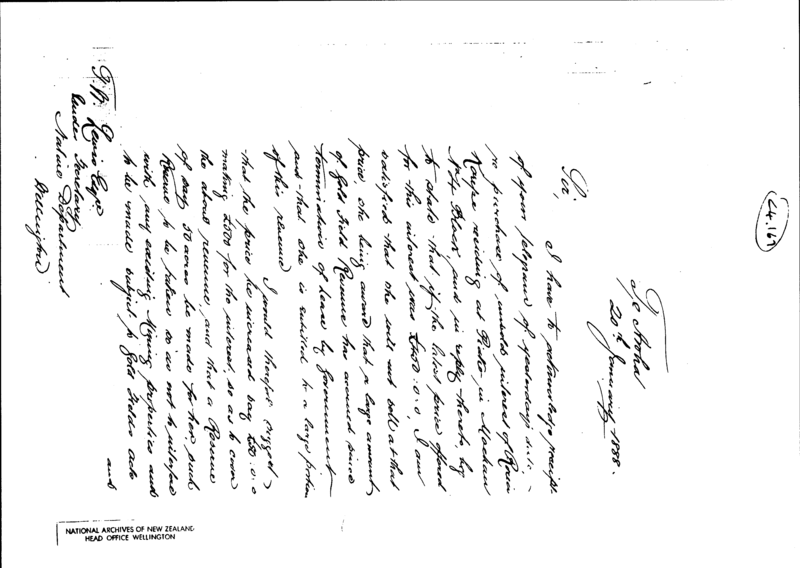 C4.169
Te Aroha
20th January 1888.
Sir,
I have to acknowledge receipt
of your telegram of yesterday
re purchase of interest of
residing at in
No 4 Block, and in reply thereto, beg
to state that if the latest price offered
for the interest was £400.0.0 I am
satisfied that she will not sell at that
price, she being aware that a large amount
of Gold Field Revenue has accrued since
termination of lease by Government
and that she is entitled to a large portion
of this revenue
I would therefore suggest
that the price be increased say .0.0
making £500 for the interest, so as to cover
the above revenue, and that a Reserve
of say 50 acres be made for her, such
Reserve to be taken so as not to interfere
with any existing Mining properties and
to be made subject to Gold Fields acts
and
T.W. Lewis Esqr.
Under Secretary
Native Department
Wellington
NATIONAL ARCHIVES OF NEW ZEALAND
HEAD OFFICE WELLINGTON